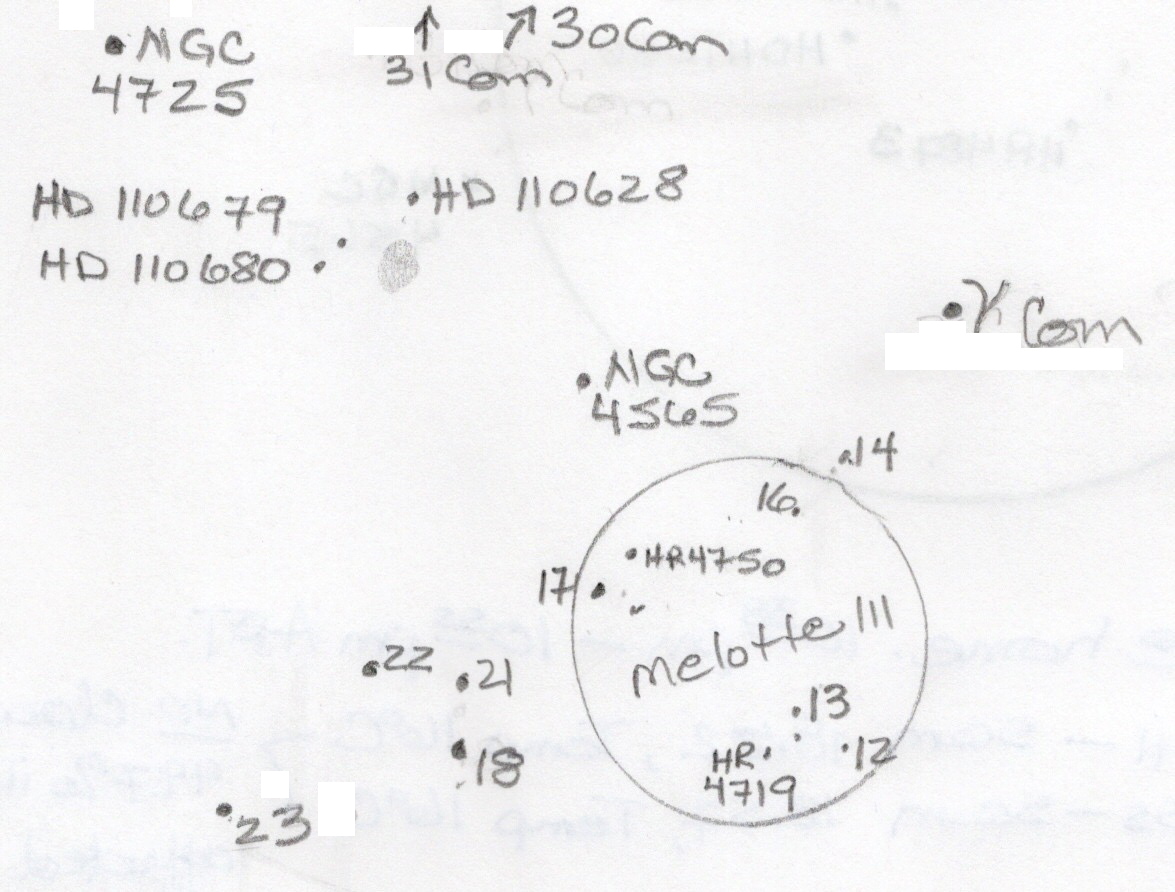 NGC
4725
31 Com
30 Com
HD 110679
HD 110628
HD 110680
γ Com
NGC
4565
14
16
HR4750
17
melotte 111
22
21
13
HR
4719
12
18
23